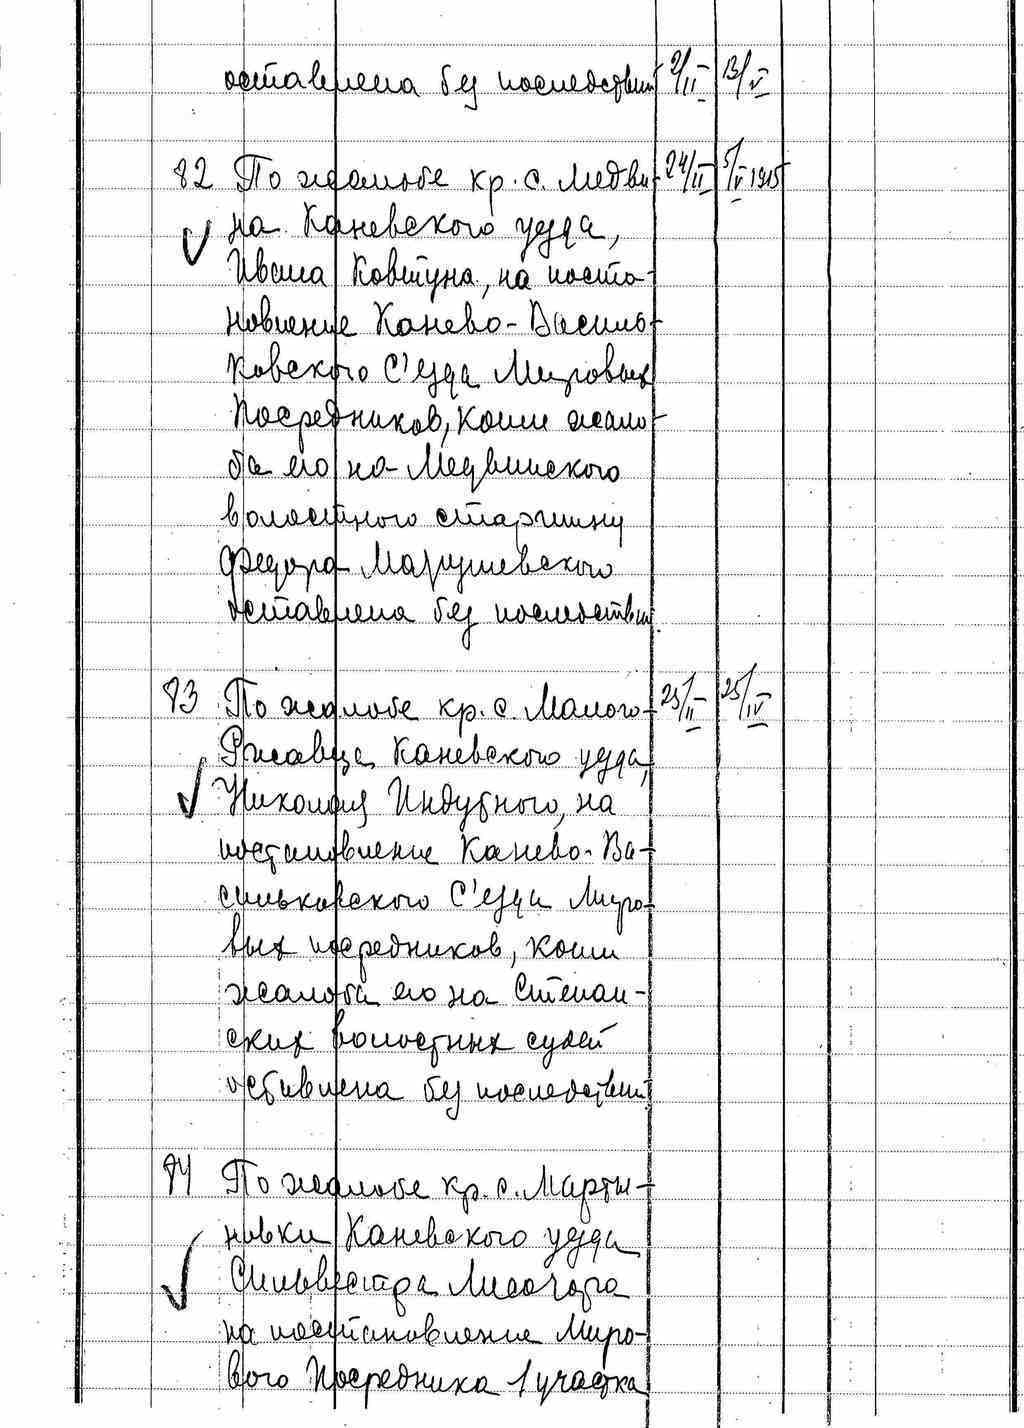 оставлена без последствий 2/II 13/V
82 По жалобе кр. с. Медви- 24/II 5/V 1915
на Каневского уезда,
Ивана Ковтуна, на поста-
новление Канево-Василь-
ковского С'езда Мировых
Посредников, коим жало-
ба его на Медвинского
волостного старшину
Федора Марушевского
оставлена без последствий.
83 По жалобе кр. с. Малого 25/II 25/IV
Ржавца Каневского уезда,
Николая Индубного, на
постановление Канево-Ва-
сильковского С'езда Миро-
вых посредников, коим
жалоба его на Степан-
ских волостных судей
оставлена без последствий
84 По жалобе кр. с. Марты-
новки Каневского уезда
Сильвестра Лисогора
на постановление Миро-
вого Посредника 1 участка